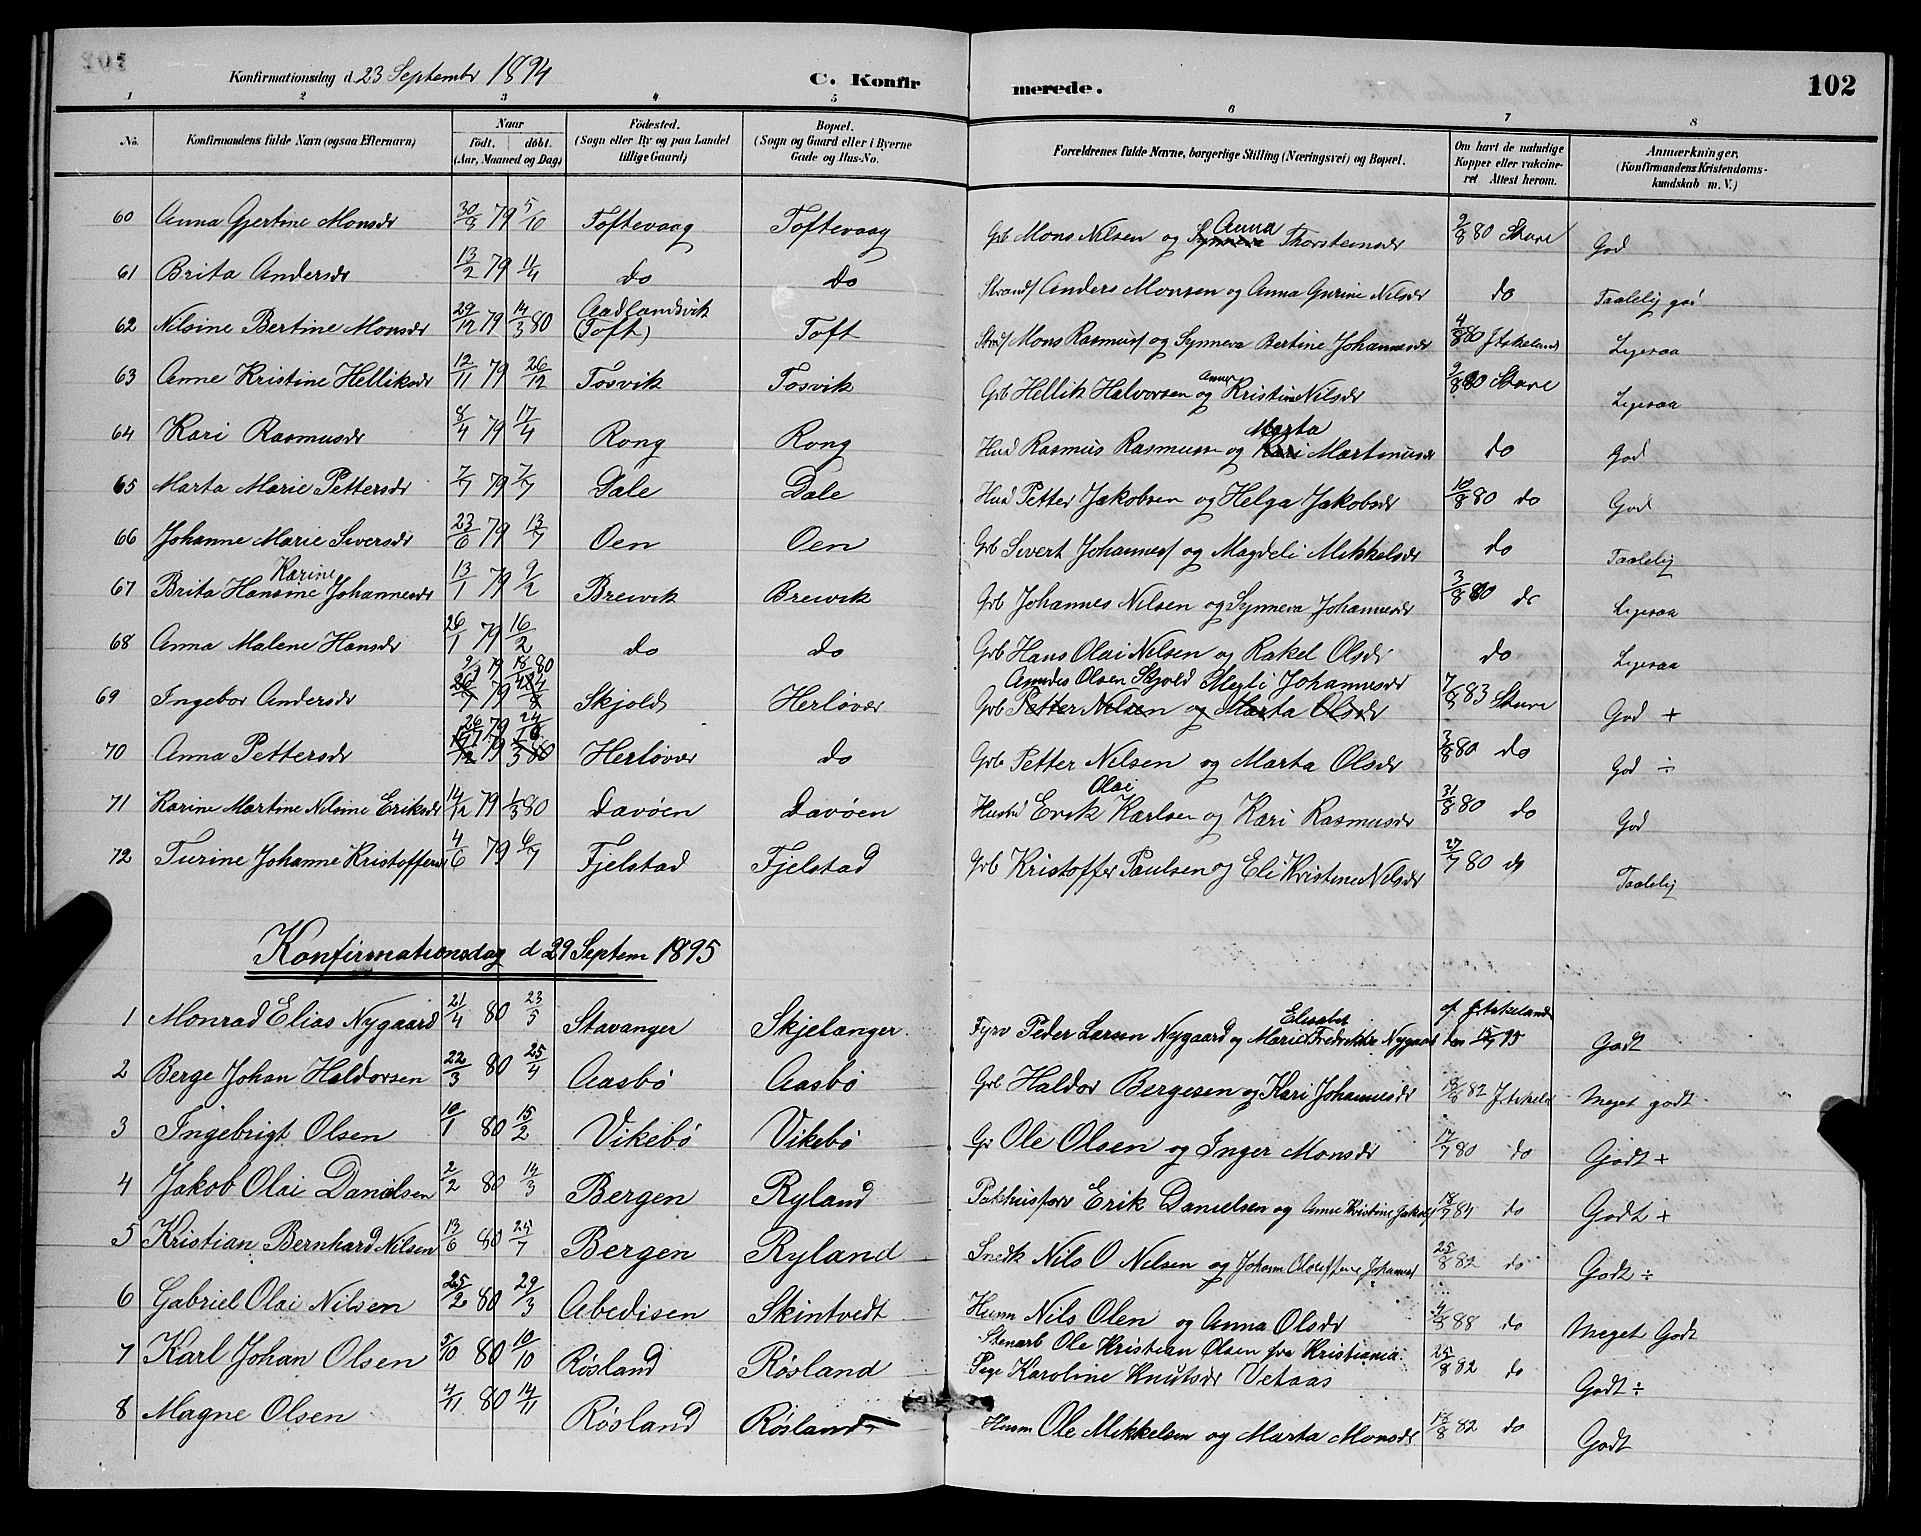 Konfirmationsdag d. 23 Septembr 1894 C. Konfir merede. 102
1 2 3 4 5 6 7 8
No. Konfirmandens fulde Navn (ogsaa Efternavn) Naar født. døbt. (Aar, Maaned og Dag) Fødested. (Sogn eller By og paa Landet tillige Gaard) Bopæl. (Sogn og Gaard eller i Byerne Gade og Hus-No. Forældrenes fulde Navne, borgerlige Stilling (Næringsvei) og Bopæl. Om havt de naturlige Kopper eller vakcineret Attest herom. Anmærkninger, (Konfirmandens Kristendomskundskab m. V.)
60 Anna Gjertine Monsdr 30/9 79 5/10 Toftevaag Toftevaag Grb Mons Nilsen og Synneva Anna Thorsteinsdr 9/8 80 Stave God
61 Brita Andersdr 13/2 79 11/4 do do Strands Anders Monsen og Anna Gurine Nilsdr do Taalelig god
62 Nilsine Bertine Monsdr 29/12 79 14/3 80 Aadlandsvik (Toft) Toft Strs Mons Rasmuss og Synneva Bertine Johannesdr 4/8 80 J Askeland Ligesaa
63 Anne Kristine Helliksdr 12/11 79 26/12 Tosvik Tosvik Grb Hellik Halvorsen og Anne Kristine Nilsdr 9/8 80 Stave Ligesaa
64 Kari Rasmusdr 8/4 79 17/4 Rong Rong Husd Rasmus Rasmussen og Kari Marta Martinusdr do God
65 Marta Marie Pettersdr 7/7 79 7/7 Dale Dale Husd Petter Jakobsen og Helga Jakobsdr 10/8 80 do God
66 Johanne Marie Siversdr 23/6 79 13/7 Oen Oen Grb Sivert Johanness og Magdeli Mikkelsdr do Taalelig
67 Brita Hansine Karine Johannesdr 13/1 79 9/2 Breivik Breivik Grb Johannes Nilsen og Synneva Johannesdr 3/8 80 do Ligesaa
68 Anna Malene Hansdr 26/1 79 16/2 do do Grb Hans Olai Nilsen og Rakel Olsdr do Ligesaa
69 Ingebor Andersdr Skjold Herløvær Grb Petter Nilsen og Marta Olsdr Olsen Skjold Johannesdr 83 Stave God +
70 Anna Pettersdr Herløvær do Grb Petter Nilsen og Marta Olsdr 3/8 80 do God ÷
71 Karine Martine Nilsine Eriksdr 14/12 79 1/3 80 Davøen Davøen Husd Erik Olai Karlsen og Kari Rasmusdr 31/8 80 do God
72 Turine Johanne Kristoffersdr 4/6 79 6/7 Fjelstad Fjelstad Grb Kristoffer Paulsen og Eli Kristine Nilsdr 27/7 80 do Taalelig
Konfirmationsdag d 29 Septem 1895
1 Monrad Elias Nygaard 21/4 80 23/5 Stavanger Skjelanger Fyrv Peder Larsen Nygaard og Marie Elisabet Fredrikke Nygaard af J Askeland den 15/7 95 Godt
2 Berge Johan Haldorsen 22/3 80 25/4 Aasbø Aasbø Grb Haldor Bergesen og Kari Johannesdr 18/8 82 J Askeld Meget godt
3 Ingebrigt Olsen 10/1 80 15/2 Vikebø Vikebø Gr Ole Olsen og Inger Monsdr 17/7 80 do Godt +
4 Jakob Olai Danielsen 2/2 80 14/3 Bergen Ryland Pakhusforv Erik Danielsen og Anne Kristine Jakobs 18/7 84 do Godt +
5 Kristian Bernhard Nilsen 13/6 80 25/7 Bergen Ryland Snedk Nils O Nilsen og 25/8 82 do Godt ÷
6 Gabriel Olai Nilsen 25/2 80 29/3 Abedisen Skintvedt Husm Nils Olen og Anna Olsdr 4/8 88 do Meget Godt
7 Karl Johan Olsen 5/10 80 10/10 Røsland Røsland Stenarb Ole Kristian Olsen fra Kristiania Pige Karoline Knutsdr Vetaas 25/8 82 do Godt ÷
8 Magne Olsen 4/11 80 14/11 Røsland Røsland Husm Ole Mikkelsen og Marta Monsdr 18/8 82 do Godt